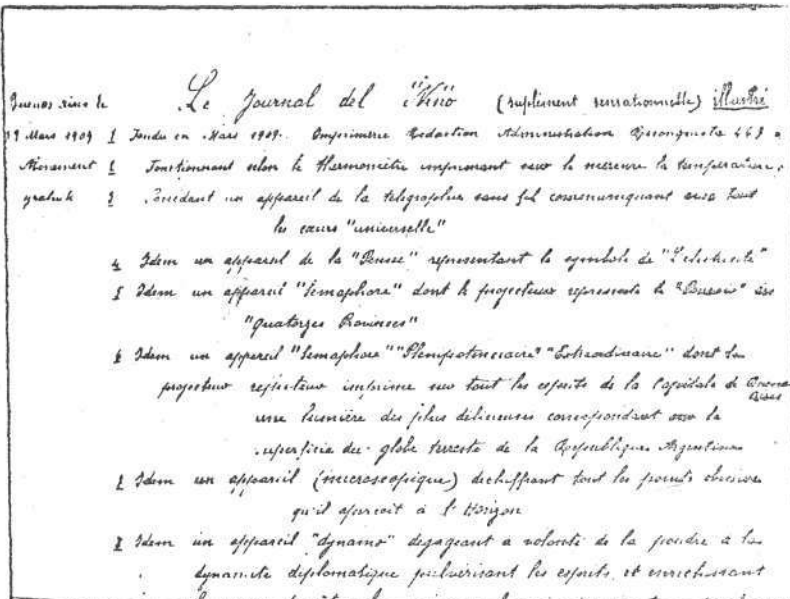 Le Journal del "Kinö" (suplement sensationnelle) illustré
Buenos Aires le
19 Mars 1909 1 Fondu en Mars 1909. Imprimerie Redaction Administration Reconquista 449
Abonement 2 Fonctionnant selon le thermomètre imprimant sur le mercure la température
gratuit 3 Possedant un appareil de la telegraphie sans fil communiquant avec tout
les cœurs "universelle"
4 Idem un appareil de la "Pensée" representant le symbole de "L'electricité"
5 Idem un appareil "Semaphore" dont le projecteur represente le des
"Quatorzes Provinces"
6 Idem un appereil "Semaphore" "Plenipotenciaire" "Extraordinaire" dont le
projecteur reflecteur imprime sur tout les esprits de la Capitale de Buenos
Aires
une lumière des plus delicieuses correspondant sur la
superficie du globe terreste de la Republique Argentine
7 Idem un appareil (microscopique) dechiffrant tout les points obscurs
qu'il aperçoit à l'Horizon
8 Idem un appareil "dynamo" degageant a volonté de la poudre à la
dynamite diplomatique pulvérisant les esprits et enrichissant